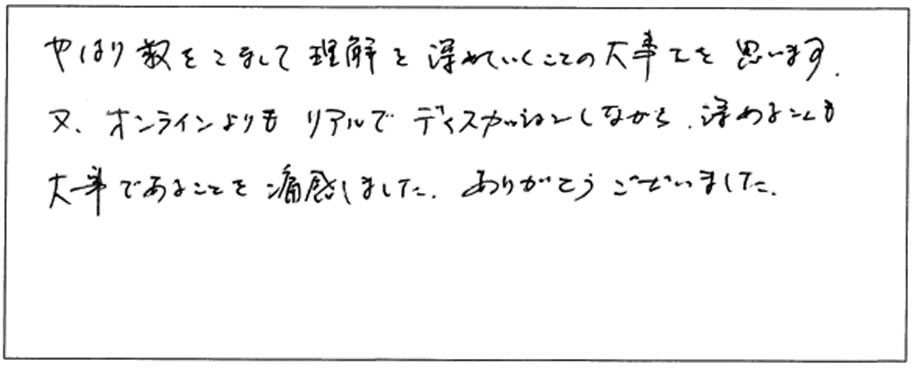 やはり数をこなして理解を深めていくことの大事さを思います.
又、オンラインよりも リアルで ディスカッションしながら、深めることも
大事であることを痛感しました. ありがとうございました.